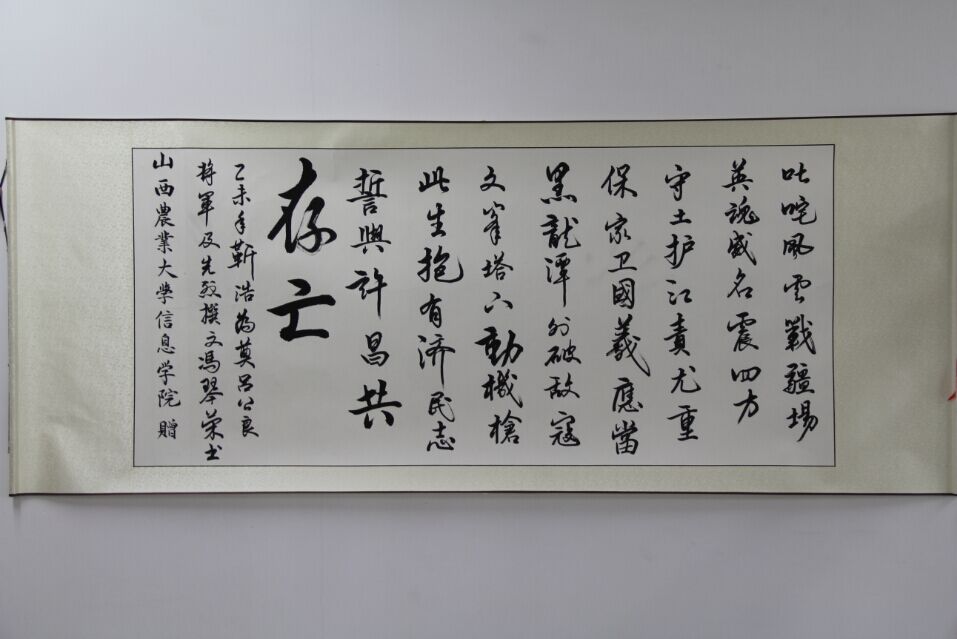 吐咤風雲戰疆場
英魂威名震四方
守土护江責尤重
保家卫國義應當
黑龍潭外破敌寇
文峯塔下動機槍
此生抱有济民志
誓與許昌共
存亡
乙未年靳浩為莫呂公良
将軍及先烈撰文馮翠荣书
山西農業大学信息学院贈